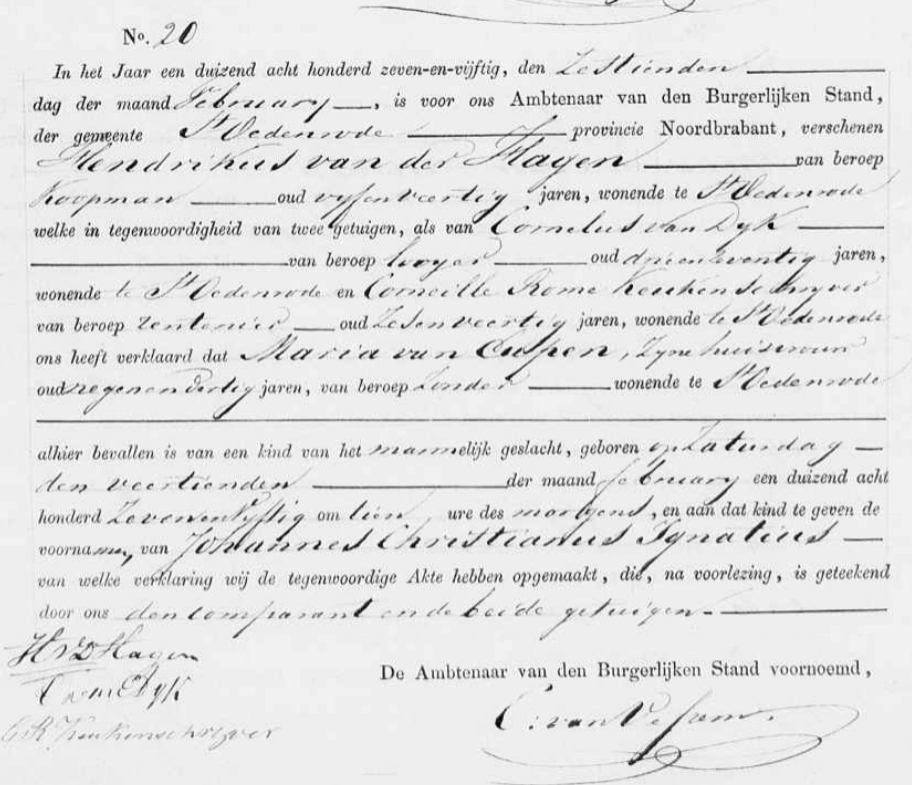 No. 20
In het Jaar een duizend acht honderd zeven-en-vijftig, den Zestienden
dag der maand February, is voor ons Ambtenaar van den Burgerlijken Stand,
der gemeente St Oedenrode provincie Noordbrabant, verschenen
Hendrikus van der Hagen van beroep
Koopman oud vyfenveertig jaren, wonende te St Oedenrode
welke in tegenwoordigheid van twee getuigen, als van Cornelus van Dyk
van beroep looyer oud drieenzeventig jaren,
wonende te St Oedenrode en Corneille Rome Keukenschryver
van beroep rentenier oud Zesenveertig jaren, wonende te St Oedenrode
ons heeft verklaard dat Maria van Cuipen, Zyne huisvrouw
oud negenendertig jaren, van beroep Zonder wonende te St Oedenrode
alhier bevallen is van een kind van het mannelijk geslacht, geboren op Zaturdag
den veertienden der maand february een duizend acht
honderd Zevenenvyftig om tien ure des morgens, en aan dat kind te geven de
voornamen, van Johannes Christianus Ignatius
van welke verklaring wij de tegenwoordige Akte hebben opgemaakt, die, na voorlezing, is geteekend
door ons den comparant en de beide getuigen.
HvD Hagen
De Ambtenaar van den Burgerlijken Stand voornoemd,
C van Dyk
C. van
C R Keukenschrijver